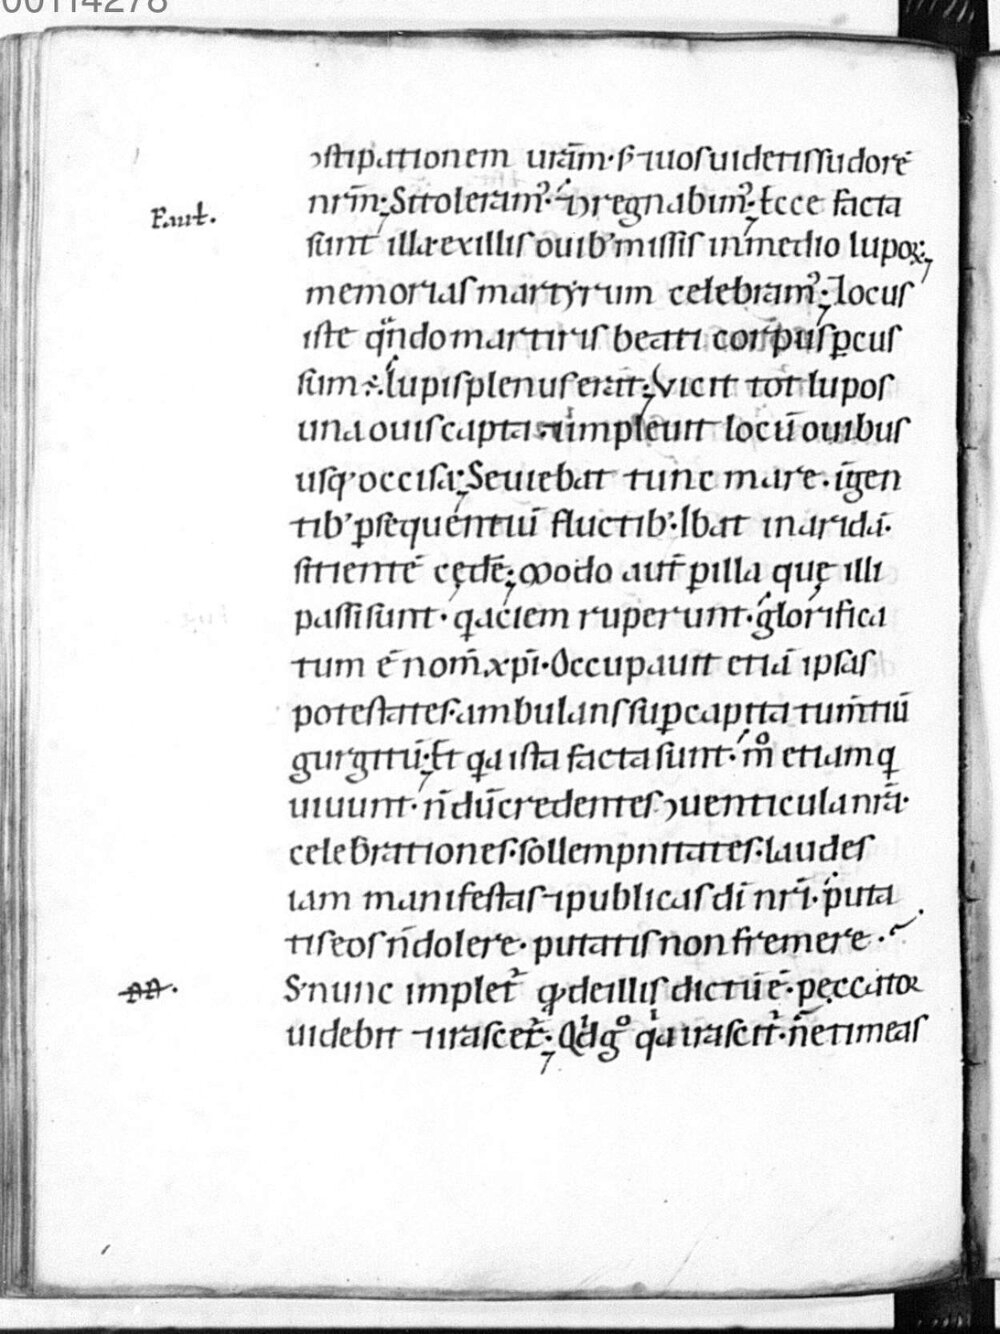 00114278
ↄstipationem uram̄· s; iuosuidetissudorē
P. aut̄.
nrm̄; Sitoleram᷒· ⁊ ↄregnabim᷒; Ecce facta
sunt illa· exillis ouib᷒ missis inmedio lupoꝝ;
memorias martyrum celebram᷒; ⁊locus
iste qn̄do martiris beati corpus ꝑcus
sum ÷· lupisplenus erat; Vicit tot lupos
una ouis capta· ⁊impleuit locū ouibus
usꝗ occisa; Seuiebat tunc mare· īgen
tib᷒ ꝑsequentiū fluctib᷒· Ibat inaridā·
sitientē cędē; Modo aut̄ ꝑilla quę illi
passisunt· qͣaciem ruperunt· glorifica
tum ē nom̄ xp̄i· Occupauit etiā ipsas
potestates· ambulans suꝑcapita tum̄tiū
gurgitū; Et qͥa ista facta sunt· m̊ etiam qͥ
uiuunt· n̄dū credentes ↄuenticula nrā·
celebrationes· sollempnitates· laudes
iam manifestas ⁊publicas dī nrī· puta
tis eos n̄dolere· putatis non fremere·
S; nunc implet᷑ qd deillis dictū ē· peccatoꝛ
uidebit ⁊irascet᷑; Qͥd gͦ qͥa irascit᷑· ne timeas